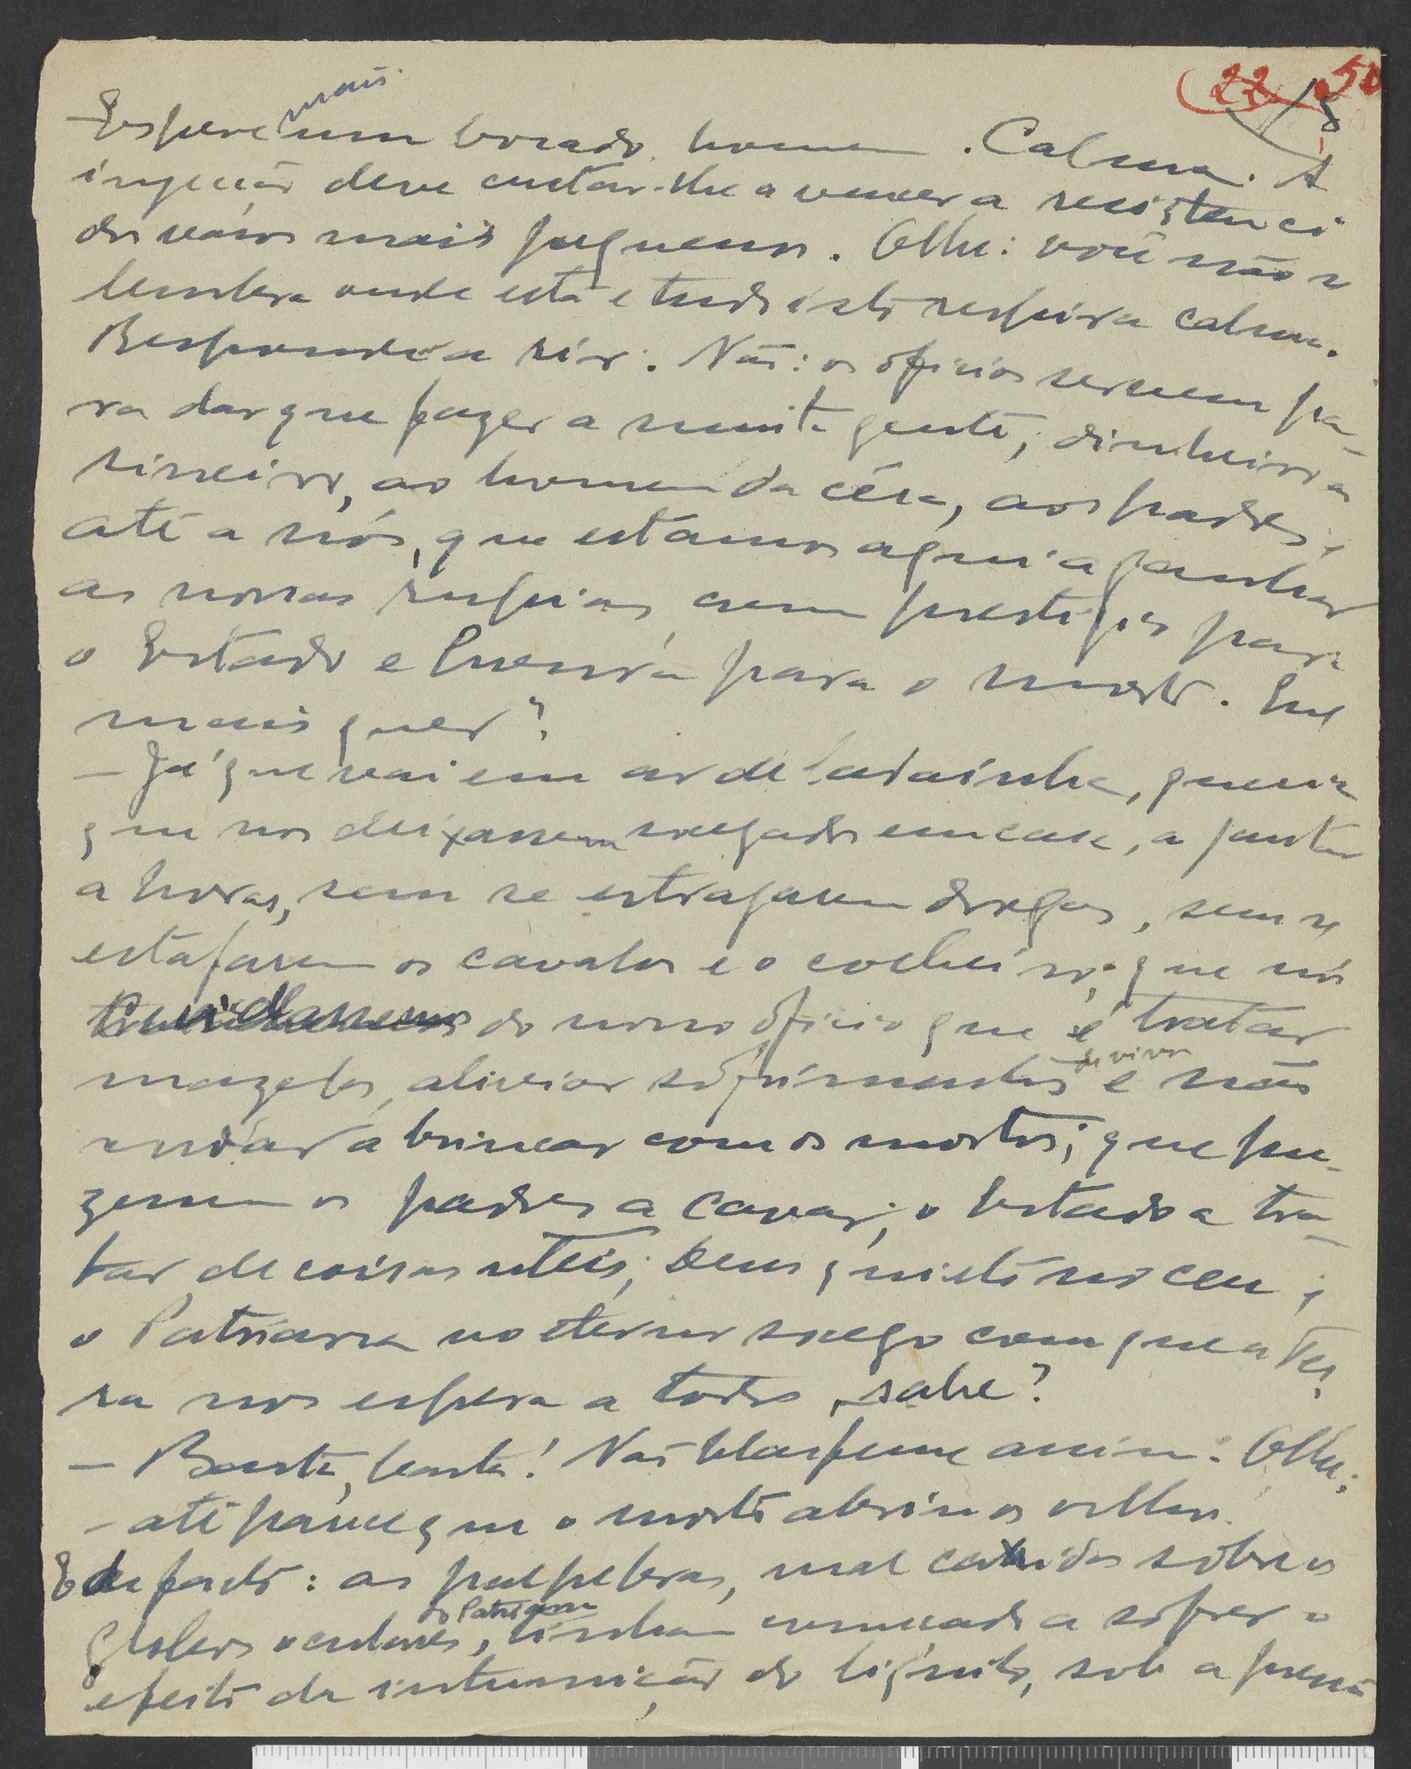 22 50
18
mais
-Espere um bocado, homem. Calma. A
injecção deve custar-lhe a vencer a resistenci
dos vasos mais pequenos. Olhe: você não se
lembra onde está e tudo isto respira calma.
Respondia a rir. Não: os oficios servem pa-
ra dar que fazer a muita gente; dinheiro ao
sineiro, ao homem da cêra, aos padres,
até a nós, que estamos aqui a ganhar
as nossas rupias, com prestigio para
o Estado e honra para o morto. Que
mais quer?
- Já que vai em ar de ladaínha, queria
que nos deixassem socegados em casa, a jantar
a horas, sem se estragarem drogas, sem se
estafarem os cavalos e o cocheiro; que nós
cuidassemos do nosso oficio que é tratar
mazelas, aliviar sofrimentos e não
de vivos
andar a brincar com os mortos; que pu-
zessem os padres a cavar; o Estado a tra-
tar de coisas uteis; Deus quieto no ceu;
o Patriarca no eterno socego com que a ter-
ra nos espera a todos, sabe?
- Basta, basta! Não blasfeme assim. Olhe;
- até parece que o morto abriu os olhos.
E de facto: as palpebras, mal caidas sobre os
do Patriarca
globos oculares, tinham começado a sofrer o
efeito da intumição do liquido, sob a pressã